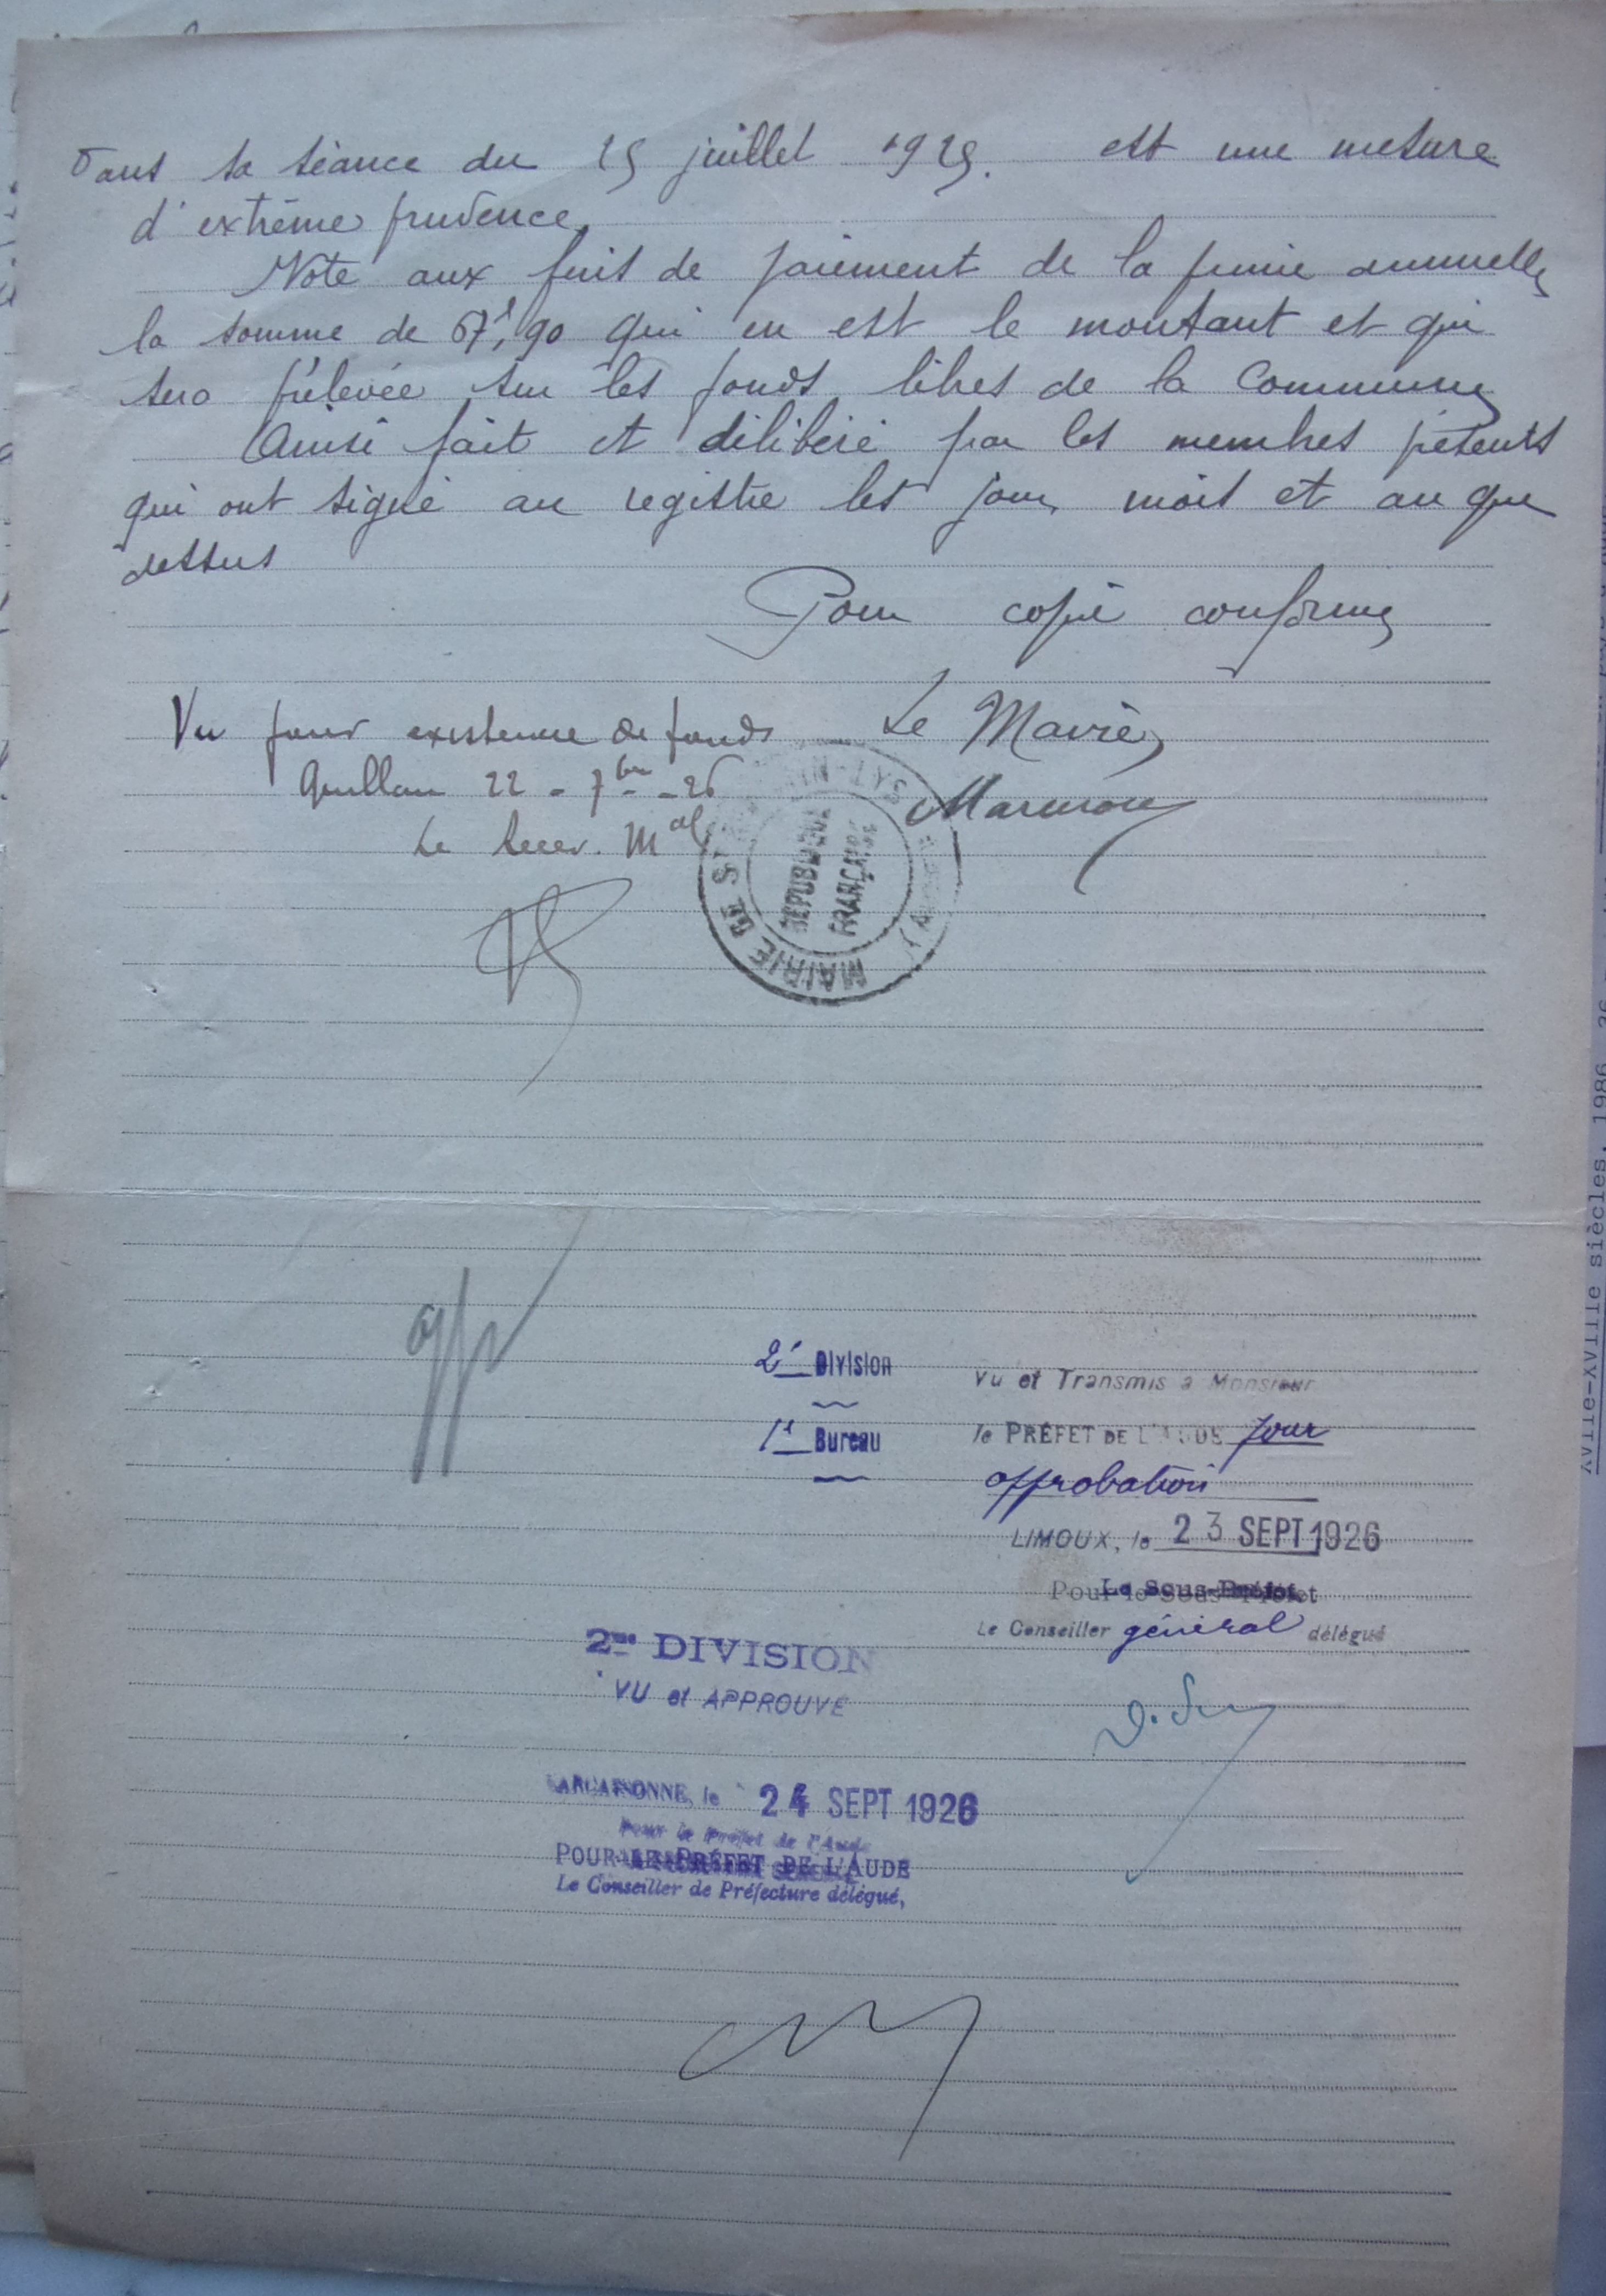 Dans sa séance du 25 juillet 1925. est une mesure
d'extrême prudence.
Vote aux fins de paiement de la prime annuelle
la somme de 67f,90 qui en est le montant et qui
sera prélevée sur les fonds libres de la Commune
Ainsi fait et délibéré par les membres présents
qui ont signé au registre les jour, mois et an que
dessus
Pour copie conforme
Le Maire,
Vu pour existence de fonds
Quillan 22 - 7bre - 26
Le Recev. Mal
MAIRIE DE ST MARTIN-LYS
RÉPUBLIQUE
FRANÇAISE
2e Division
1er Bureau
Vu et Transmis à Monsieur
le PRÉFET DE L'AUDE pour
approbation
LIMOUX, le 23 SEPT 1926
Pour le Sous-Préfet
Le Conseiller général délégué
2me DIVISION
VU et APPROUVÉ
CARCASSONNE, le 24 SEPT 1926
Pour le Préfet de l'Aude
POUR LE PRÉFET DE L'AUDE
Le Conseiller de Préfecture délégué,
XVIIe-XVIIIe siècles, 1986, 36